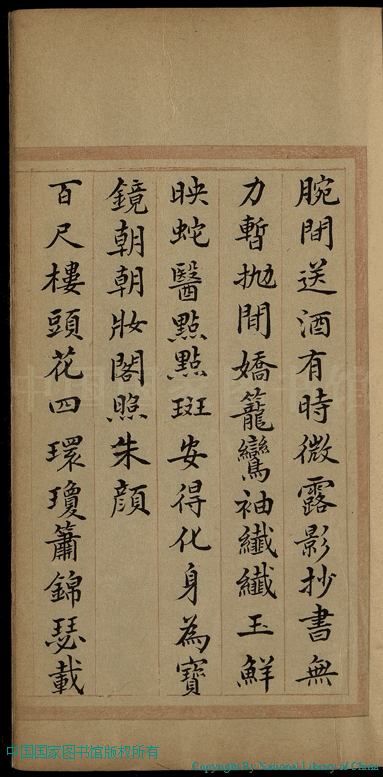 腕間送酒有時微露影抄書無
力暫拋間嬌籠鸞袖纖纖玉鮮
映蛇醫點點斑安得化身為寶
鏡朝朝妝閣照朱顔
百尺樓頭花四環瓊簫錦瑟載
中国国家图书馆版权所有
Copyright By National Library of China